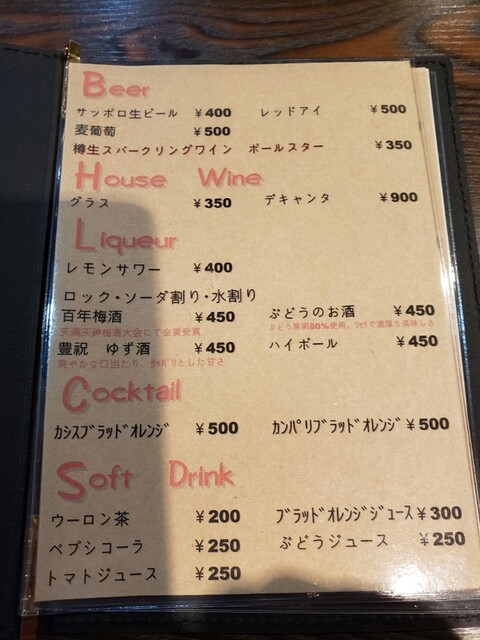 Beer
サッポロ生ビール ¥400 レッドアイ ¥500
麦葡萄 ¥500
樽生スパークリングワイン ポールスター ¥350
House Wine
グラス ¥350 デキャンタ ¥900
Liqueur
レモンサワー ¥400
ロック・ソーダ割り・水割り
百年梅酒 ¥450 ぶどうのお酒 ¥450
天満天神梅酒大会にて金賞受賞 ぶどう果汁80%使用、リッチで濃厚な美味しさ
豊祝 ゆず酒 ¥450 ハイボール ¥450
爽やかな口当たり、サッパリとした甘さ
Cocktail
カシスブラッドオレンジ ¥500 カンパリブラッドオレンジ ¥500
Soft Drink
ウーロン茶 ¥200 ブラッドオレンジジュース ¥300
ペプシコーラ ¥250 ぶどうジュース ¥250
トマトジュース ¥250